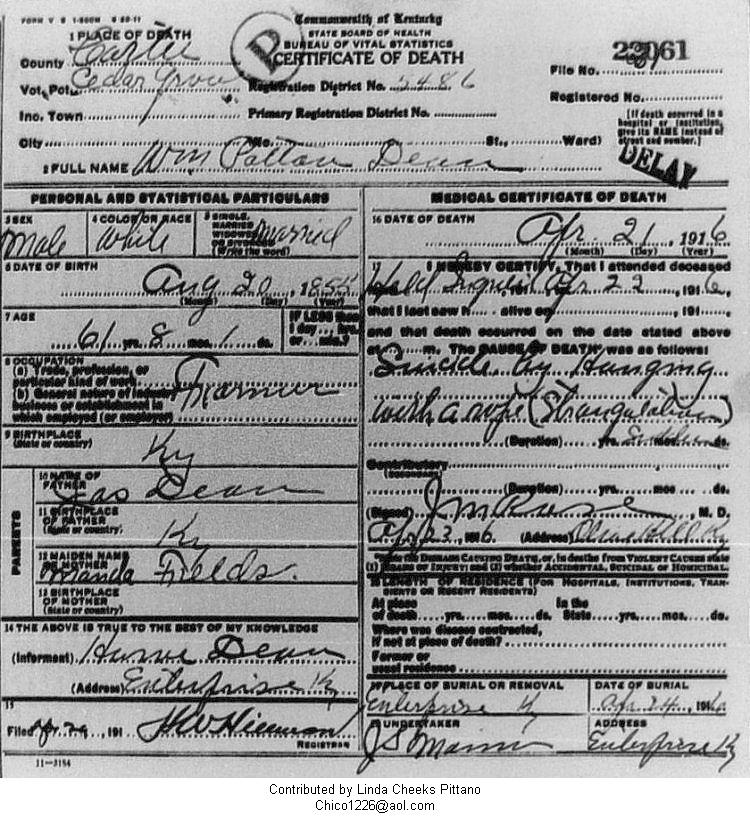 FORM V S 1-500M 8-22-11
Commonwealth of Kentucky
STATE BOARD OF HEALTH
BUREAU OF VITAL STATISTICS
CERTIFICATE OF DEATH
1 PLACE OF DEATH
County Carter
Vot. Pct. Cedar Grove
Inc. Town
City No. St., Ward)
D
Registration District No. 5486
Primary Registration District No.
File No. 22061
Registered No.
[If death occurred in a
hospital or institution,
give its NAME instead of
street and number.]
DELAY
2 FULL NAME Wm Patton Dean
PERSONAL AND STATISTICAL PARTICULARS
3 SEX
Male
4 COLOR OR RACE
White
5 SINGLE,
MARRIED,
WIDOWED
OR DIVORCED
(Write the word)
Married
6 DATE OF BIRTH
Aug 20, 1855
(Month) (Day) (Year)
7 AGE
61 yrs. 8 mos. 1 ds.
IF LESS than
1 day ... hrs.
or ... min.?
8 OCCUPATION
(a) Trade, profession, or
particular kind of work
(b) General nature of industry
business or establishment in
which employed (or employer)
Farmer
9 BIRTHPLACE
(State or country)
Ky
PARENTS
10 NAME OF
FATHER
Jas Dean
11 BIRTHPLACE
OF FATHER
(State or country)
Ky
12 MAIDEN NAME
OF MOTHER
Manda Fields.
13 BIRTHPLACE
OF MOTHER
(State or country)
14 THE ABOVE IS TRUE TO THE BEST OF MY KNOWLEDGE
(Informent) Dean
(Address) Enterprise Ky
15
Filed 191
REGISTRAR
11-3184
MEDICAL CERTIFICATE OF DEATH
16 DATE OF DEATH
Apr. 21, 1916
(Month) (Day) (Year)
17 I HEREBY CERTIFY, That I attended deceased
Held Inquest Apr 22, 1916,
that I last saw h alive on , 191 ,
and that death occurred on the date stated above
at m. The CAUSE OF DEATH was as follows:
Suicide by Hanging
with a rope (Strangulation)
(Duration) yrs. mos. ds.
Contributory
(SECONDARY)
(Duration) yrs. mos. ds.
(Signed) J M , M. D.
Apr 23, 1916 (Address) Olive Hill Ky
State the DISEASE CAUSING DEATH, or, in deaths from VIOLENT CAUSES state
(1) MEANS OF INJURY; and (2) whether ACCIDENTAL, SUICIDAL OR HOMICIDAL.
18 LENGTH OF RESIDENCE (FOR HOSPITALS, INSTITUTIONS, TRANSIENTS OR RECENT RESIDENTS)
At place In the
of death yrs. mos. ds. State yrs. mos. ds.
Where was disease contracted,
if not at place of death?
Former or
usual residence
19 PLACE OF BURIAL OR REMOVAL
Enterprise Ky
DATE OF BURIAL
Apr 24, 1916
20 UNDERTAKER
J S
ADDRESS
Enterprise Ky
Contributed by Linda Cheeks Pittano
Chico1226@aol.com